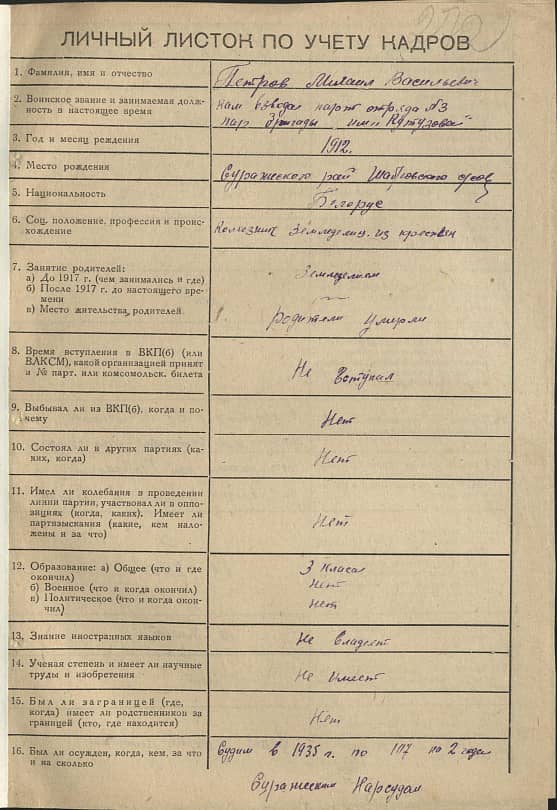 ЛИЧНЫЙ ЛИСТОК ПО УЧЕТУ КАДРОВ
1. Фамилия, имя и отчество
Петров Михаил Васильевич
2. Воинское звание и занимаемая долж-
ность в настоящее время
Ком взвода парт отряда №3
пар бригады имен Кутузова
3. Год и месяц рождения
1912.
4. Место рождения
Суражского рай сов
5. Национальность
Белорус
6. Соц. положение, профессия и проис-
хождение
Колхозник Земледелец. из крестьян
7. Занятие родителей:
а) До 1917 г. (чем занимались и где)
б) После 1917 г. до настоящего вре-
мени
в) Место жительства родителей
Земледелием
родители умерли
8. Время вступления в ВКП(б) (или
ВЛКСМ), какой организацией принят
и № парт. или комсомольск. билета
Не вступил
9. Выбывал ли из ВКП(б), когда и по-
чему
Нет
10. Состоял ли в других партиях (ка-
ких, когда)
Нет
11. Имел ли колебания в проведении
линии партии, участвовал ли в оппо-
зициях (когда, каких). Имеет ли
партвзыскания (какие, кем нало-
жены и за что)
Нет
12. Образование: а) Общее (что и где
окончил)
б) Военное (что и когда окончил)
в) Политическое (что и когда окон-
чил)
3 класа
Нет
Нет
13. Знание иностранных языков
Не владеет
14. Ученая степень и имеет ли научные
труды и изобретения
Не имеет
15. Был ли заграницей (где,
когда) имеет ли родственников за
границей (кто, где находится)
Нет
16. Был ли осужден, когда, кем, за что
и на сколько
Судим в 1935 г. по 107 на 2 года
Суражским Нарсудом